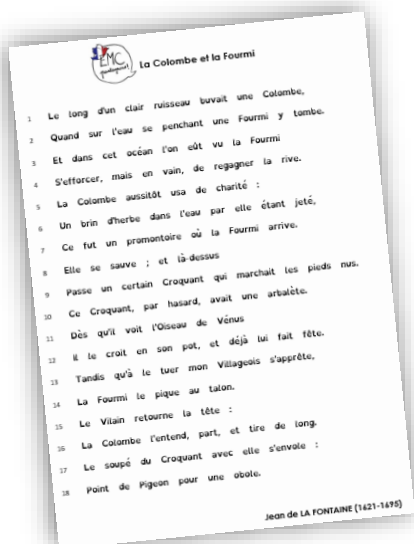 EMC
La Colombe et la Fourmi
1 Le long d'un clair ruisseau buvait une Colombe,
2 Quand sur l'eau se penchant une Fourmi y tombe.
3 Et dans cet océan l'on eût vu la Fourmi
4 S'efforcer, mais en vain, de regagner la rive.
5 La Colombe aussitôt usa de charité :
6 Un brin d'herbe dans l'eau par elle étant jeté,
7 Ce fut un promontoire où la Fourmi arrive.
8 Elle se sauve ; et là-dessus
9 Passe un certain Croquant qui marchait les pieds nus.
10 Ce Croquant, par hasard, avait une arbalète.
11 Dès qu'il voit l'Oiseau de Vénus
12 Il le croit en son pot, et déjà lui fait fête.
13 Tandis qu'à le tuer mon Villageois s'apprête,
14 La Fourmi le pique au talon.
15 Le Vilain retourne la tête :
16 La Colombe l'entend, part, et tire de long.
17 Le soupé du Croquant avec elle s'envole :
18 Point de Pigeon pour une obole.
Jean de LA FONTAINE (1621-1695)